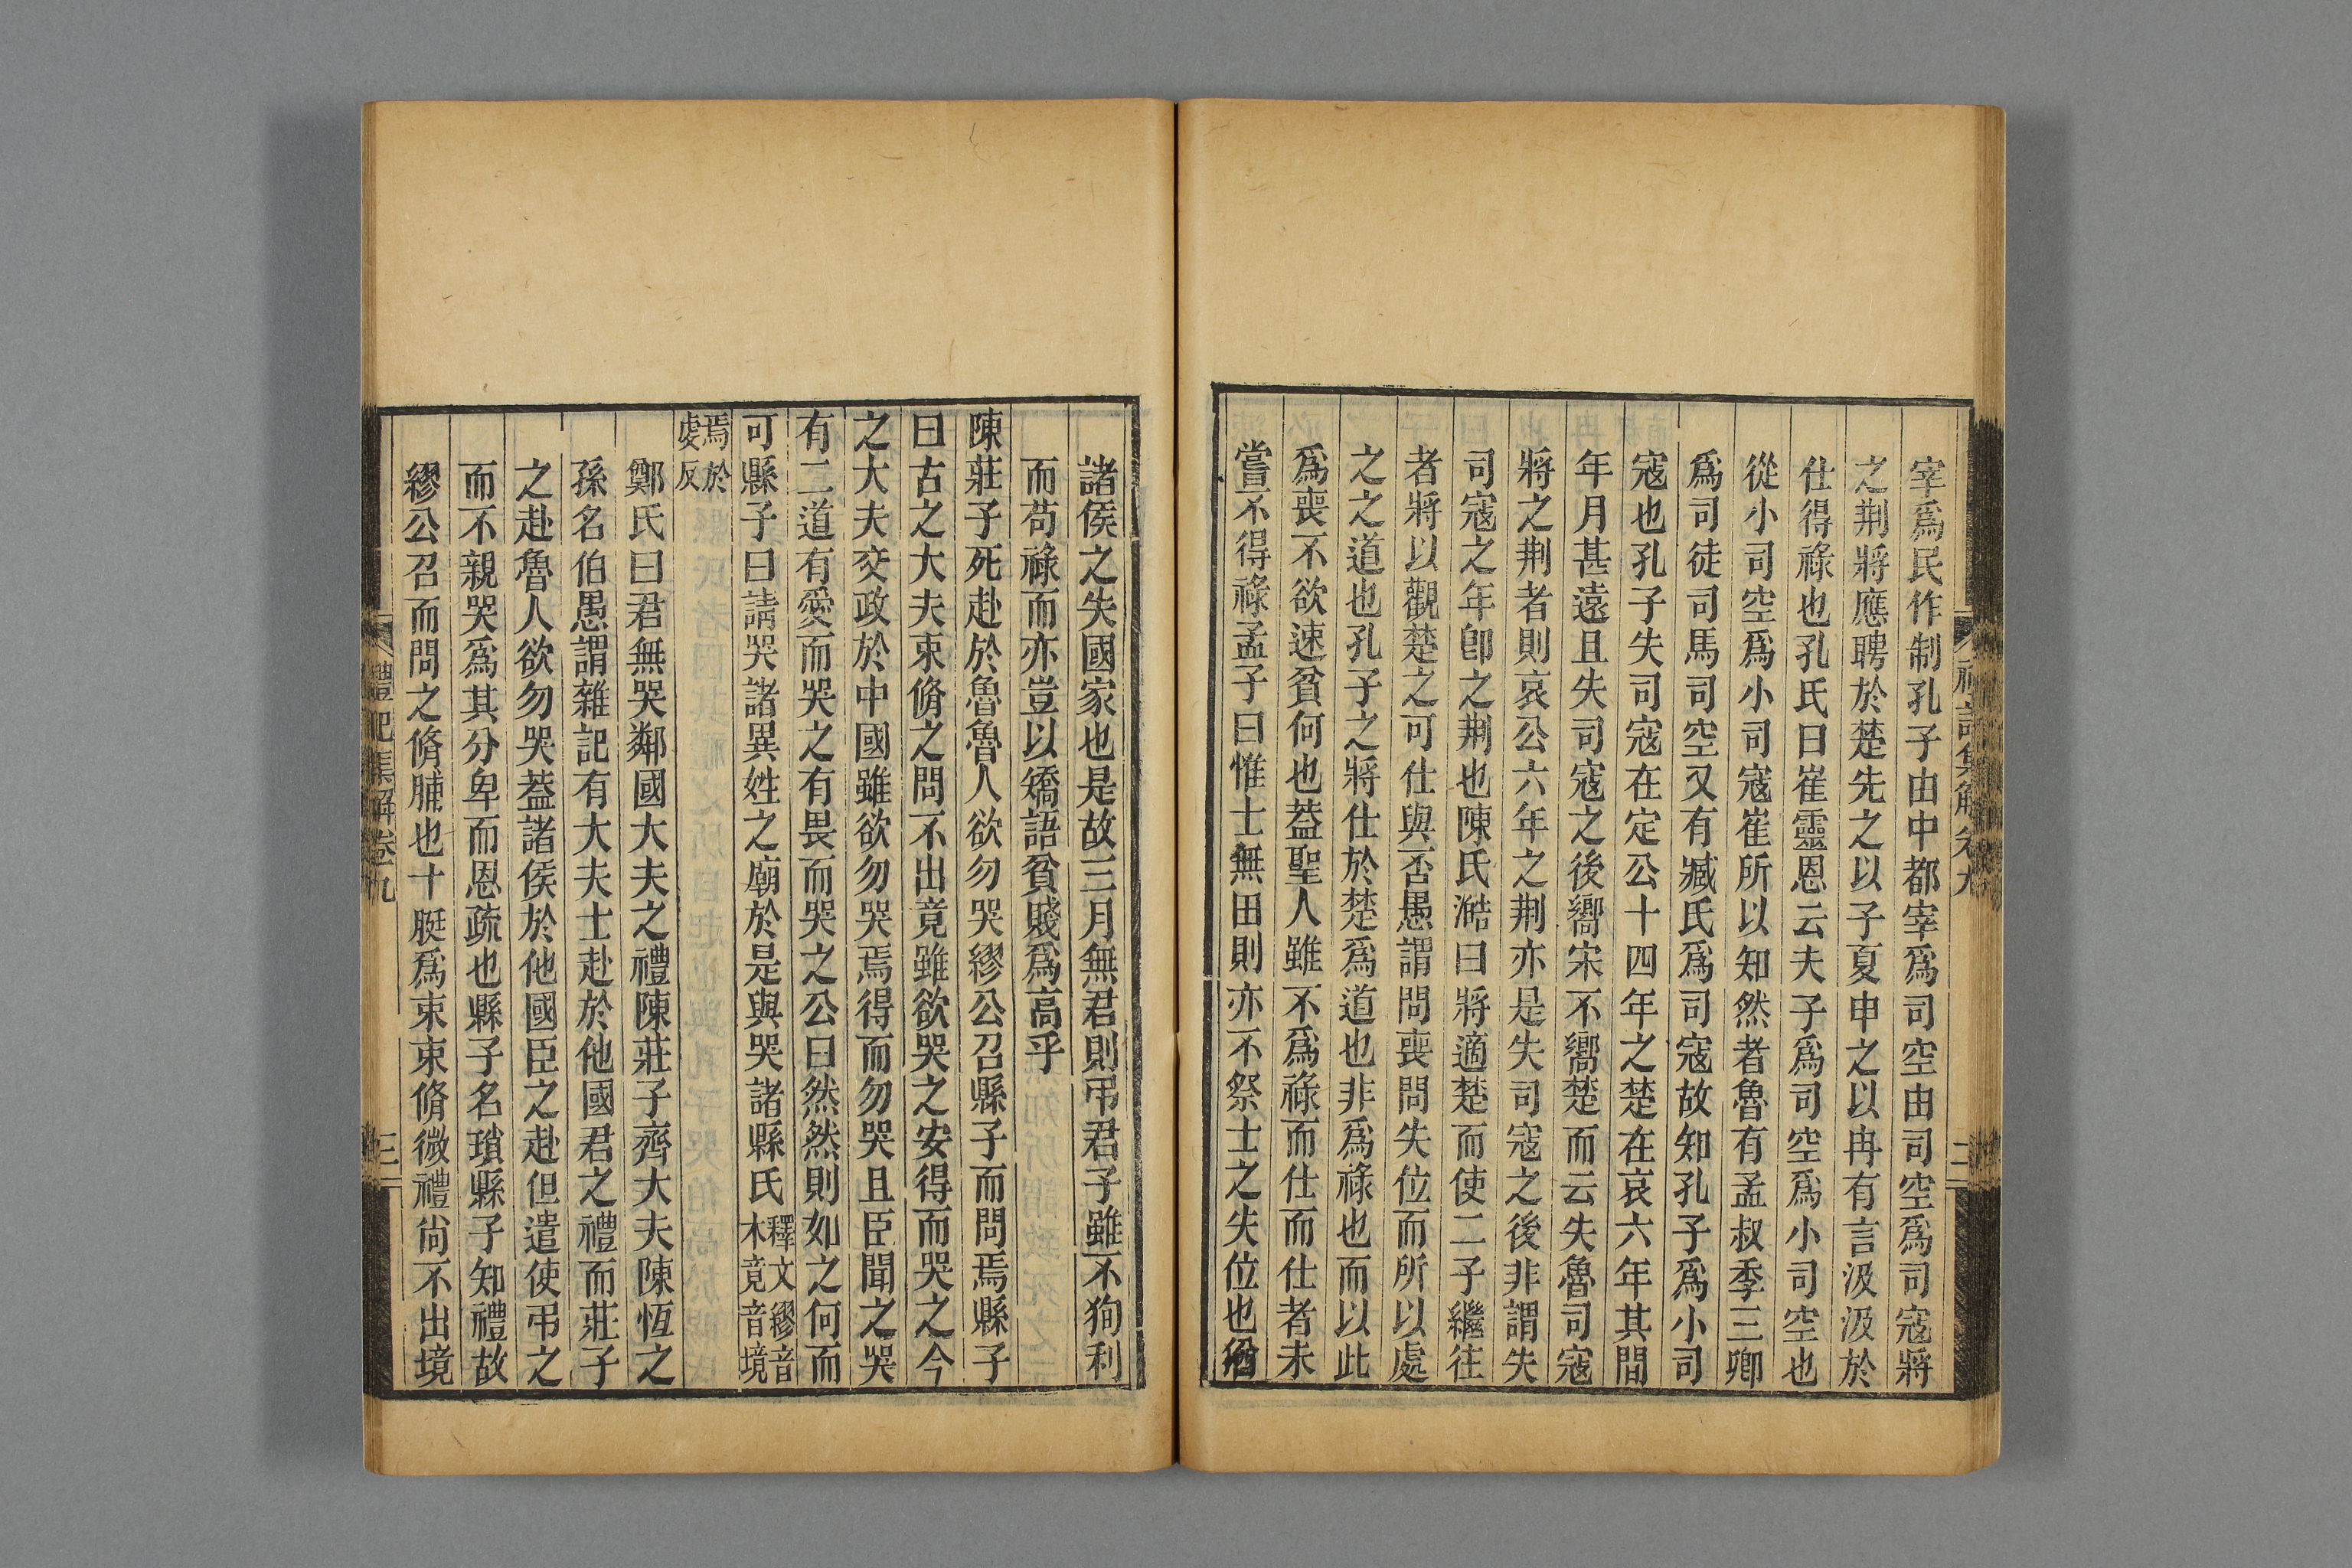 宰爲民作制孔子由中都宰爲司空由司空爲司寇將
之荆將應聘於楚先之以子夏申之以冉有言汲汲於
仕得祿也孔氏曰崔靈恩云夫子爲司空爲小司空也
從小司空爲小司寇崔所以知然者魯有孟叔季三卿
爲司徒司馬司空又有臧氏爲司寇故知孔子爲小司
寇也孔子失司寇在定公十四年之楚在哀六年其間
年月甚遠且失司寇之後嚮宋不嚮楚而云失魯司寇
將之荆者則哀公六年之荆亦是失司寇之後非謂失
司寇之年卽之荆也陳氏澔曰將適楚而使二子繼往
者將以觀楚之可仕與否愚謂問喪問失位而所以處
之之道也孔子之將仕於楚爲道也非爲祿也而以此
爲喪不欲速貧何也葢聖人雖不爲祿而仕而仕者未
嘗不得祿孟子曰惟士無田則亦不祭士之失位也猶
禮記集解卷九
二
諸侯之失國家也是故三月無君則弔君子雖不狥利
而苟祿而亦豈以矯語貧賤爲高乎
陳莊子死赴於魯魯人欲勿哭繆公召縣子而問焉縣子
曰古之大夫束脩之問不出竟雖欲哭之安得而哭之今
之大夫交政於中國雖欲勿哭焉得而勿哭且臣聞之哭
有二道有愛而哭之有畏而哭之公曰然然則如之何而
可縣子曰請哭諸異姓之廟於是與哭諸縣氏釋文繆音木竟音境
焉於虔反
鄭氏曰君無哭鄰國大夫之禮陳莊子齊大夫陳恆之
孫名伯愚謂雜記有大夫士赴於他國君之禮而莊子
之赴魯人欲勿哭葢諸侯於他國臣之赴但遣使弔之
而不親哭爲其分卑而恩疏也縣子名瑣縣子知禮故
繆公召而問之脩脯也十脡爲束束脩微禮尙不出境
禮記集解卷九
三